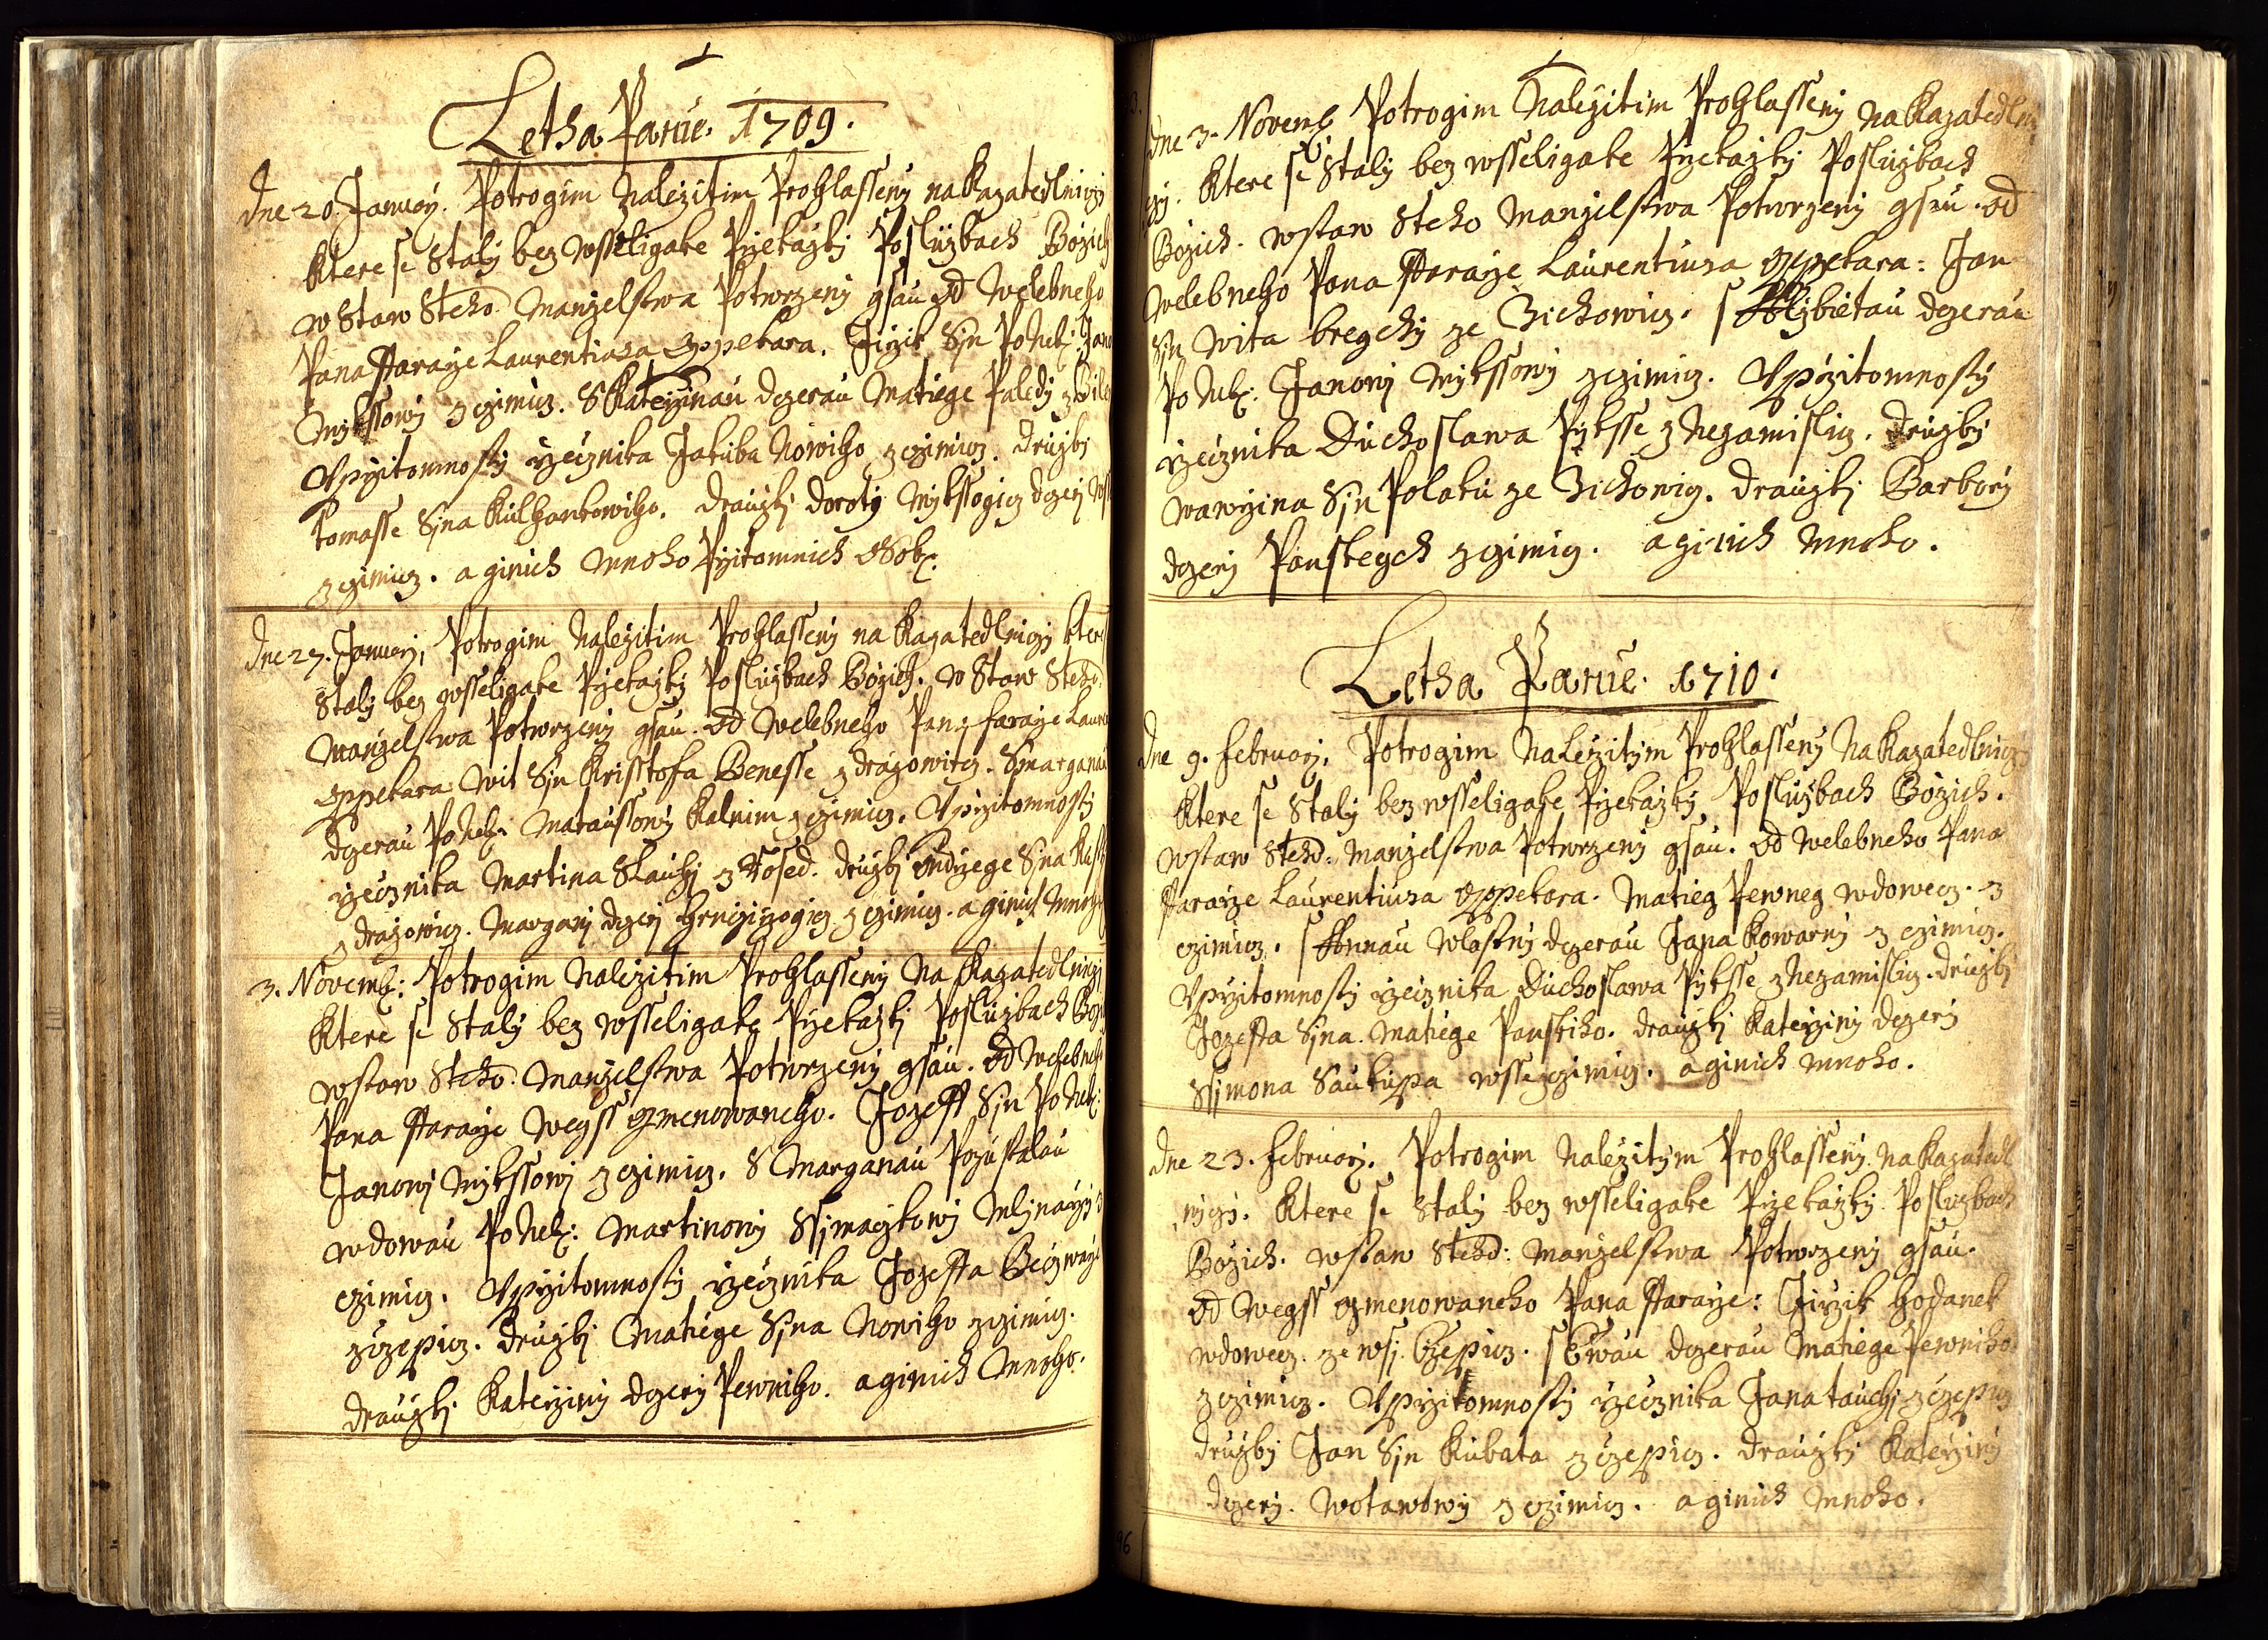 Letha Panie. 1709.
Dne 20. Januarÿ. Potrogim Nalezitim Prohlassenÿ na Kazatedlniczÿ
Ktere se Stalÿ bez wsseligake Przekazkÿ Posluzbach Bozich
w Staw Steho Manzelstwa Potwrzenÿ gsau od Welebneho
Pana Ffararze Laurentiusa Oppekara. Jirzik Sÿn Po Neb: Jano
Mÿkssowÿ z czimicz. S Katerzinau dczerau Matiege Paledÿ z
Vprzitomnostÿ rzecznika Jakuba Nowiho z czimicz. druzbÿ
tomasse Sÿna Kulhankowiho. drauzkÿ dorotÿ Mÿkssogicz dczerÿ
z czimicz. a ginich mnoho Przitomnich Osob.
Dne 27. Januarÿ, Potrogim Nalezitim Prohlassenÿ na Kazatedlniczÿ Ktere
Stalÿ bez wsseligake Przekazkÿ Posluzbach Bozich. w Staw Steho
Manzelstwa Potwrzenÿ gsau. od Welebneho Pana fararze Laure
Oppekara Wit Sÿn Krisstofa Benesse z drazowicz. S Marganau
dczerau Po Neb: Mataussowÿ Kalnim z czimicz. Vprzitomnostÿ
rzecznika Martina Slauhÿ z Hosed. druzbÿ Ondrzege Sÿna
z drazowicz. Margarÿ dczerÿ Hrnczirzogicz z czimicz. a ginich Mnoho
3. Novemb: Potrogim Nalezitim Prohlassenÿ Na Kazatedlniczÿ
Ktere se Stalÿ bez wsseligake Przekazkÿ Posluzbach Bozi
wstaw Steho: Manzelstwa Potwrzenÿ gsau. od Welebneh
Pana Ffararze Wegss Gmenowaneho. Jozeff Sÿn Po Neb:
Janowÿ Mÿkssowÿ z czimicz. S Marganau Pozustalau
wdowau Po Neb: Martinowÿ Ssimaczkowÿ Mlÿnarzÿ z
czimicz. Vprzitomnostÿ rzecznika Jozeffa Beczwarz
z czepicz. druzbÿ Matiege Sÿna Nowiho z czimicz.
drauzkÿ Katerzinÿ dczerÿ Pewniho. a ginich Mnoho.
Dne 3. Novemb Potrogim Nalezitim Prohlassenÿ na Kazatedlni
czÿ. Ktere se Stalÿ bez wsseligake Przekazkÿ Posluzbach
Bozich. wstaw Steho Manzelstwa Potwrzenÿ gsau. od
Welebneho Pana Ffararze Laurentiusa Oppekara: Jan
Sÿn Wita bregchÿ ze Zichowicz. s Alzbietau dczerau
Po Neb: Janowÿ Mÿkssowÿ z czimicz. Vprzitomnostÿ
rzecznika Duchoslawa Pÿksse z Nezamislicz. druzbÿ
wawrzina Sÿn Polaku ze Zichowicz. drauzkÿ Barborÿ
dczerÿ Panskegch z czimicz. a ginich mnoho.
Letha Panie. 1710.
Dne 9. Februarÿ. Potrogim Nalezitÿm Prohlassenÿ Na Kazatedlnicz
Ktere se Stalÿ bez wsseligake Przekazkÿ Posluzbach Bozich.
wstaw Steho: Manzelstwa Potwrzenÿ gsau. od Welebneho Pana
Ffararze Laurentiusa Oppekara. Matieg Pewneg wdowecz. z
czimicz. s Annau Wlastnÿ dczerau Jana Kowarnÿ z czimicz.
Vprzitomnostÿ rzecznika Duchoslawa Pÿksse z Nezamislicz. druzbÿ
Jozeffa Sÿna. Matiege Panskiho. drauzkÿ Katerzinÿ dczerÿ
Ssimona Saukupa wsse z czimicz. a ginich mnoho.
Dne 23. Februarÿ. Potrogim Nalezitÿm Prohlassenÿ. Na Kazatedl
niczÿ. Ktere se Stalÿ bez wsseligake Przekazkÿ Posluzbach
Bozich. wstaw Steho: Manzelstwa Potwrzenÿ gsau.
od Wegss Gmenowaneho Pana Ffararze: Jirzik Hodanek
wdowecz. ze wsÿ Czepicz. s Ewau dczerau Matiege Pewniho
z czimicz. Vprzitomnostÿ rzecznika Jana tauchÿ z czepicz
druzbÿ Jan Sÿn Kubata z czepicz. drauzkÿ Katerzinÿ
dczerÿ. Wotawowÿ z czimicz. a ginich mnoho.
96